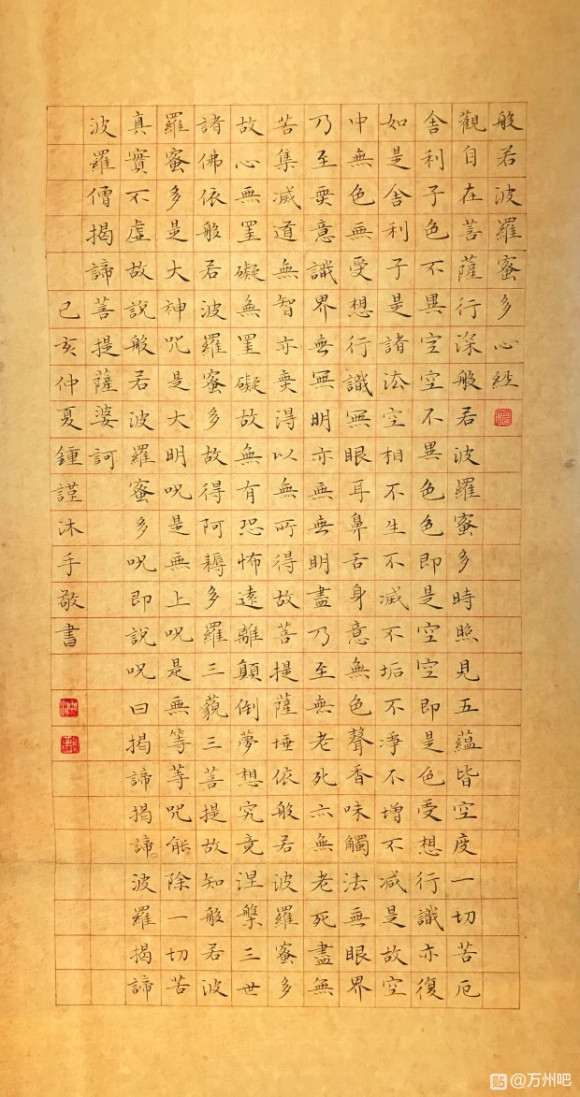 般若波羅蜜多心經
觀自在菩薩行深般若波羅蜜多時照見五蘊皆空度一切苦厄
舍利子色不異空空不異色色即是空空即是色受想行識亦復
如是舍利子是諸法空相不生不滅不垢不淨不增不減是故空
中無色無受想行識無眼耳鼻舌身意無色聲香味觸法無眼界
乃至無意識界無無明亦無無明盡乃至無老死亦無老死盡無
苦集滅道無智亦無得以無所得故菩提薩埵依般若波羅蜜多
故心無罣礙無罣礙故無有恐怖遠離顛倒夢想究竟涅槃三世
諸佛依般若波羅蜜多故得阿耨多羅三藐三菩提故知般若波
羅蜜多是大神咒是大明呪是無上呪是無等等咒能除一切苦
真實不虛故說般若波羅蜜多呪即說呪曰揭諦揭諦波羅揭諦
波羅僧揭諦菩提薩婆訶
己亥仲夏鍾謹沐手敬書
貼 @万州吧